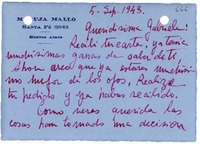 MARUJA MALLO
SANTA FE
BUENOS AIRES
5. Sep. 1945.
Queridísima Gabriela:
Recibí tu carta: ya tenía
muchísimas ganas de saber de ti,
ahora creo que ya estarás muchísi
mo mejor de los ojos. Realizé
tu pedido y ya habrás recibido.
Como verás querida las
cosas han tomado una decisiva